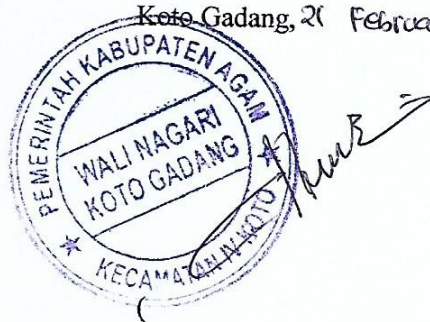 Koto Gadang, 21 Februa
PEMERINTAH KABUPATEN AGAM
WALI NAGARI
KOTO GADANG
KECAMATAN IV KOTO
(